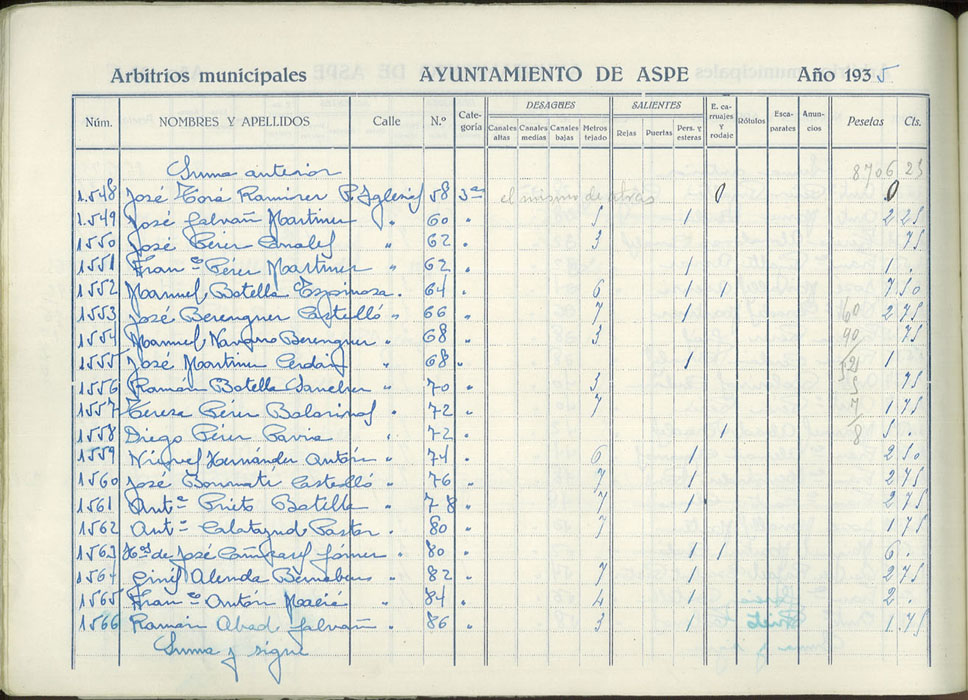 Arbitrios municipales AYUNTAMIENTO DE ASPE Año 1935
DESAGÜES SALIENTES
Núm. NOMBRES Y APELLIDOS Calle N.º Categoría Canales altas Canales medias Canales bajas Metros tejado Rejas Puertas Pers. y esteras E. carruajes y rodaje Rótulos Escaparates Anuncios Pesetas Cts.
Suma anterior 8706 25
1.548 José Torá Ramírez P. Iglesias 58 3ª el mismo de atrás 0 0
1.549 José Galvañ Martínez " 60 " 5 1 2 25
1550 José Pérez Canales " 62 . 3 75
1551 Franco Pérez Martínez " 62 . 1 1 .
1552 Manuel Botella Espinosa . 64 . 6 1 1 7 50
1553 José Berenguer Castelló " 66 " 7 1 2 75
1554 Manuel Navarro Berenguer " 68 " 3 75
1555 José Martínez Cerdán " 68 . 1 1
1556 Ramón Botella Sánchez " 70 " 3 75
1557 Teresa Pérez . 72 " 7 1 75
1558 Diego Pérez Pavía . 72 . 1 5 .
1559 Miguel Hernández Antón " 74 . 6 1 2 50
1560 José Boronat Castelló " 76 " 7 1 2 75
1561 Antº Prieto Botella " 78 " 7 1 2 75
1562 Antº Calatayud Pastor . 80 " 7 1 75
1563 Hos de José Gómez . 80 . 1 1 6 .
1564 Ginés Alenda Bernabeu " 82 " 7 1 2 75
1565 Franco Antón Maciá " 84 " 4 1 2 .
1566 Ramón Abad Galvañ . 86 " 3 1 1 75
Suma y sigue